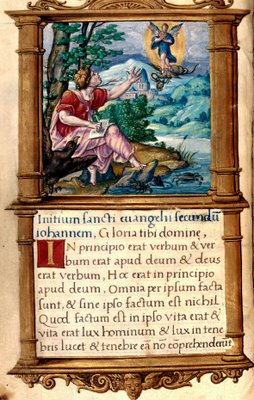 Initium sancti euangelii secundũ
iohannem, Gloria tibi domine,
IN principio erat verbum & ver
bum erat apud deum & deus
erat verbum, Hoc erat in principio
apud deum, Omnia per ipsum facta
sunt, & sine ipso factum est nichil.
Quod factum est in ipso vita erat &
vita erat lux hominum & lux in tene
bris lucet & tenebre eã nõ cõprehenderũt